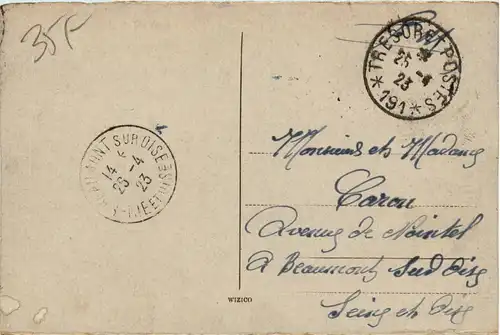 35F
TRESOR ET POSTES
25-4
23
*191*
BEAUMONT SUR OISE
14
26-4
23
Monsieur et Madame
Caron
Avenue de Nointel
A Beaumont Sur Oise
Seine et Oise
WIZICO